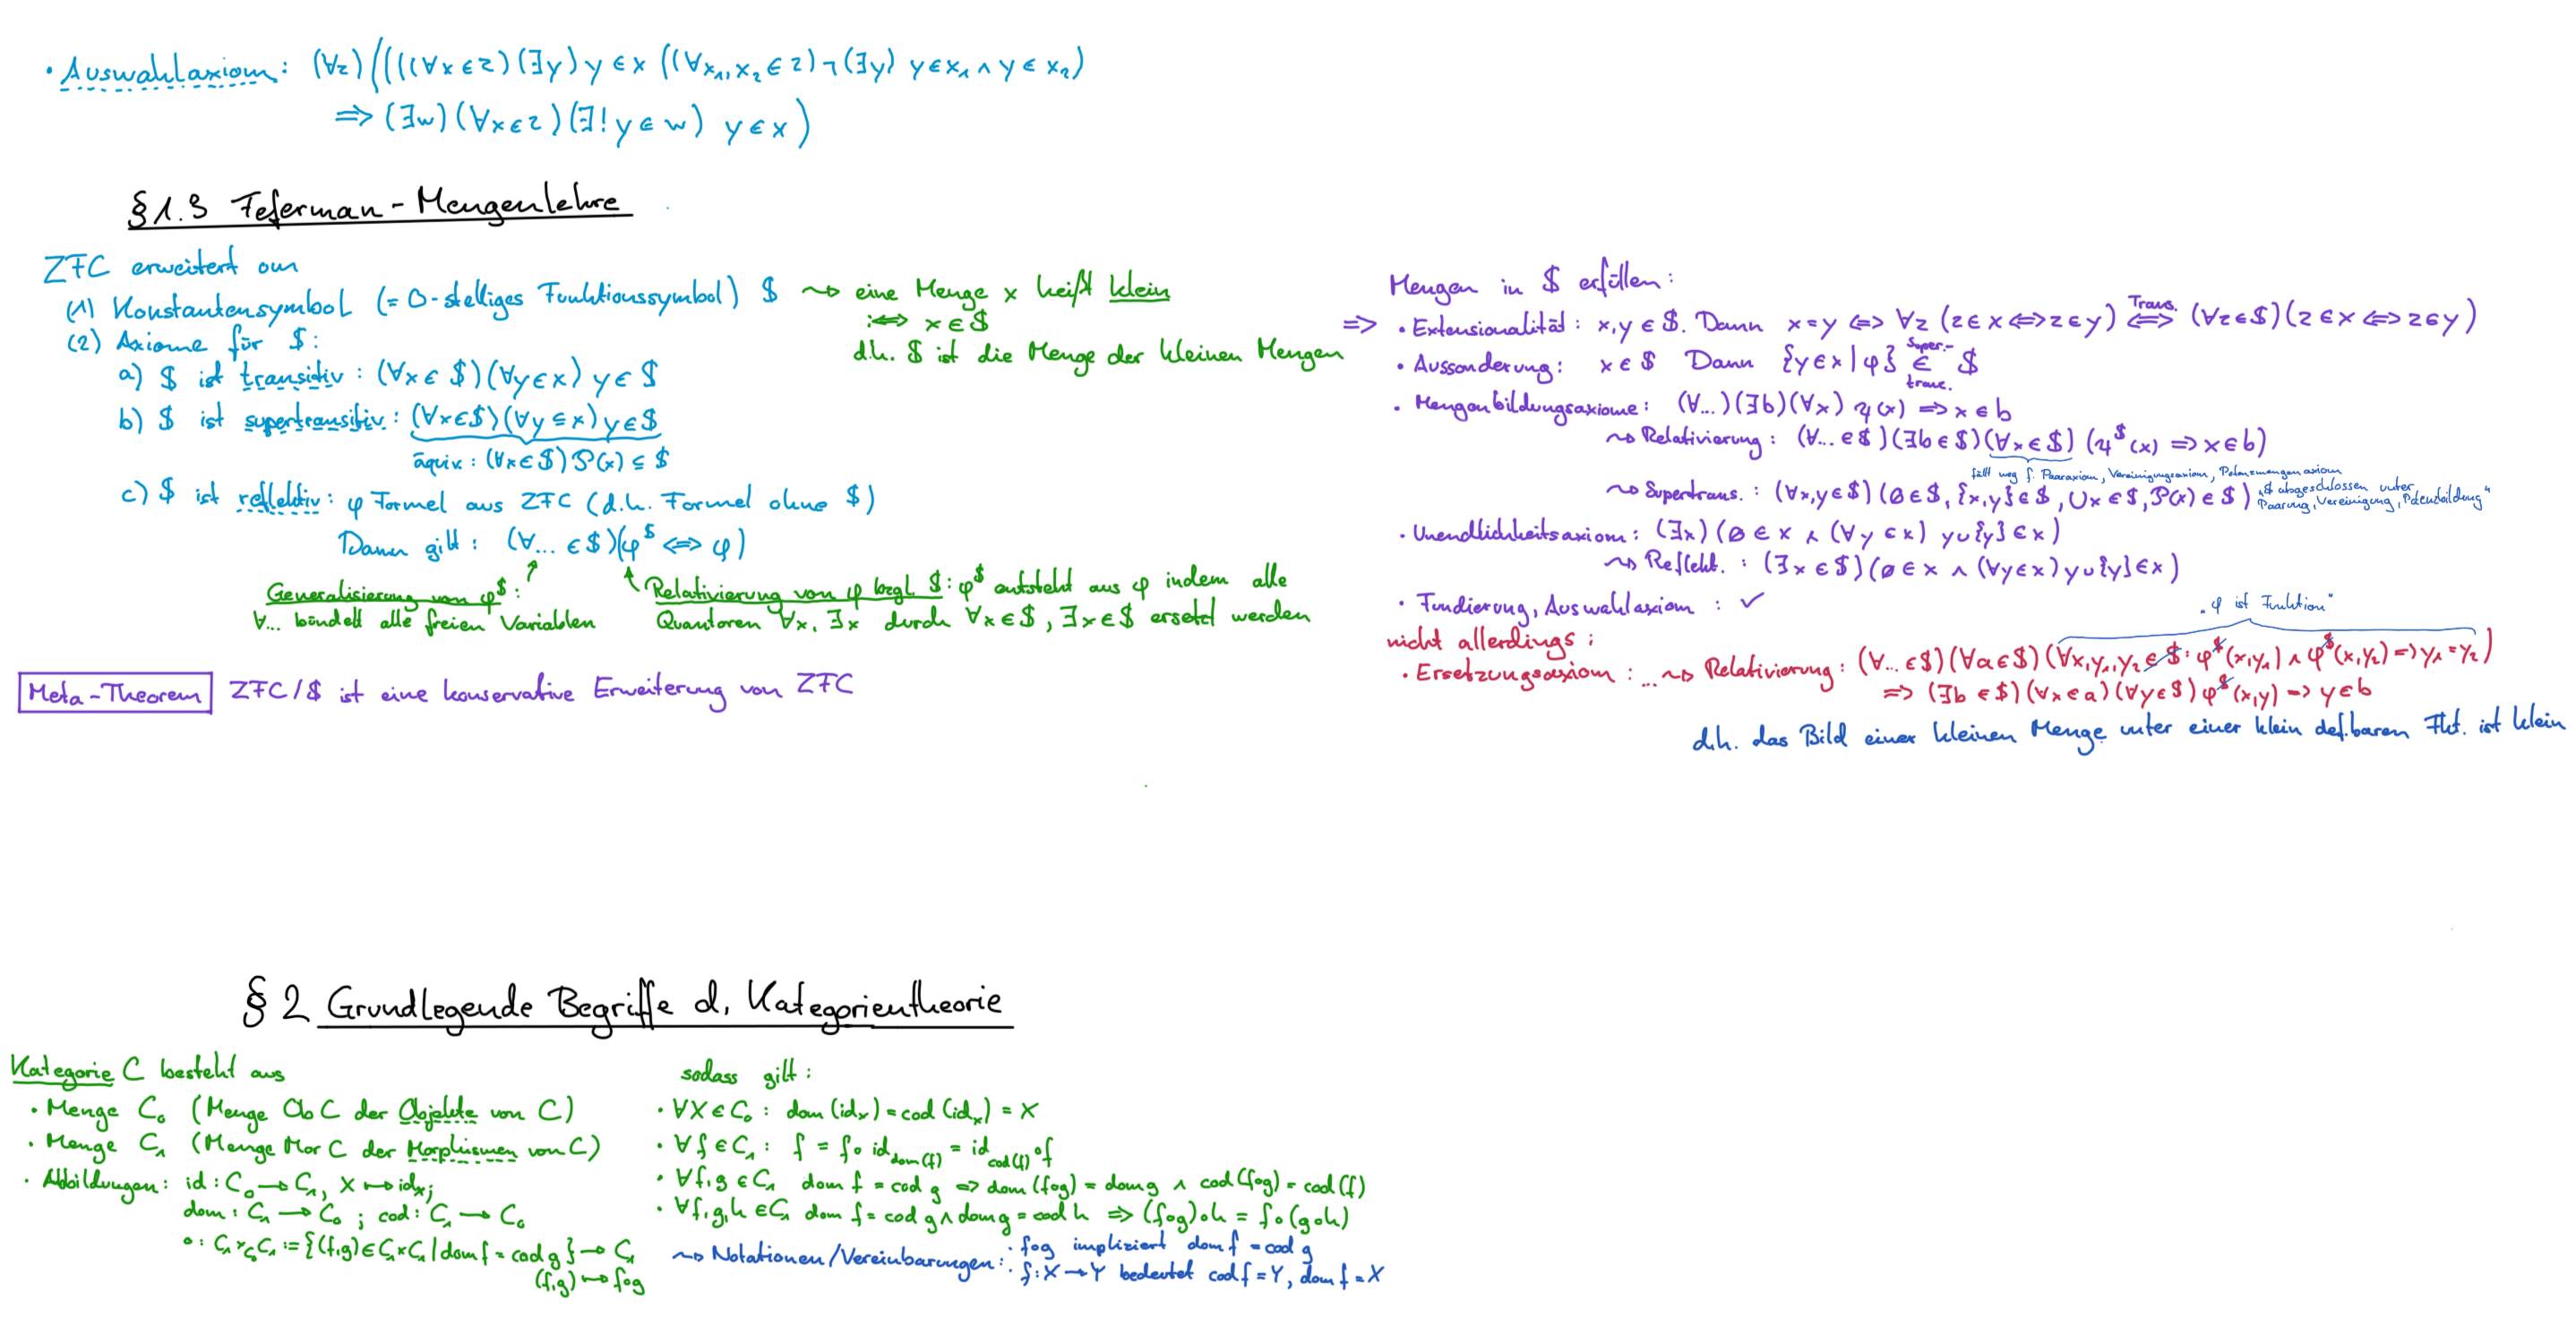 • Auswahlaxiom: (∀z) ((((∀x∈z)(∃y) y∈x ((∀x₁,x₂∈z) ¬(∃y) y∈x₁ ∧ y∈x₂)
⇒ (∃w)(∀x∈z)(∃!y∈w) y∈x)
§1.3 Feferman-Mengenlehre
ZFC erweitert um
(1) Konstantensymbol (= 0-stelliges Funktionssymbol) $ ⇝ eine Menge x heißt klein
:⇔ x∈$
d.h. $ ist die Menge der kleinen Mengen
(2) Axiome für $:
a) $ ist transitiv: (∀x∈$)(∀y∈x) y∈$
b) $ ist supertransitiv: (∀x∈$)(∀y⊆x) y∈$
äquiv.: (∀x∈$) P(x) ⊆ $
c) $ ist reflektiv: φ Formel aus ZFC (d.h. Formel ohne $)
Dann gilt: (∀... ∈$)(φ^$ ⇔ φ)
Generalisierung von φ^$:
∀... bündelt alle freien Variablen
Relativierung von φ bzgl $: φ^$ entsteht aus φ indem alle
Quantoren ∀x, ∃x durch ∀x∈$, ∃x∈$ ersetzt werden
Meta-Theorem ZFC/$ ist eine konservative Erweiterung von ZFC
Mengen in $ erfüllen:
⇒ • Extensionalität: x,y ∈ $. Dann x=y ⇔ ∀z (z∈x ⇔ z∈y) ⇔ Trans. (∀z∈$)(z∈x ⇔ z∈y)
• Aussonderung: x∈$ Dann {y∈x|φ} ∈ $ Super-trans.
• Mengenbildungsaxiome: (∀...)(∃b)(∀x) ψ(x) ⇒ x∈b
⇝ Relativierung: (∀...∈$)(∃b∈$)(∀x∈$) (ψ^$(x) ⇒ x∈b)
fällt weg f. Paaraxiom, Vereinigungsaxiom, Potenzmengenaxiom
⇝ Supertrans.: (∀x,y∈$)(∅∈$, {x,y}∈$, ∪x∈$, P(x)∈$) „$ abgeschlossen unter
Paarung, Vereinigung, Potenzbildung"
• Unendlichkeitsaxiom: (∃x)(∅∈x ∧ (∀y∈x) y∪{y}∈x)
⇝ Reflekt.: (∃x∈$)(∅∈x ∧ (∀y∈x) y∪{y}∈x)
• Fundierung, Auswahlaxiom: ✓
„φ ist Funktion"
nicht allerdings:
• Ersetzungsaxiom: ... ⇝ Relativierung: (∀...∈$)(∀a∈$)(∀x,y₁,y₂∈$: φ^$(x,y₁) ∧ φ^$(x,y₂) ⇒ y₁=y₂)
⇒ (∃b∈$)(∀x∈a)(∀y∈$) φ^$(x,y) ⇒ y∈b
d.h. das Bild einer kleinen Menge unter einer klein def.baren Fkt. ist klein
§ 2 Grundlegende Begriffe d. Kategorientheorie
Kategorie C besteht aus
• Menge C₀ (Menge Ob C der Objekte von C)
• Menge C₁ (Menge Mor C der Morphismen von C)
• Abbildungen: id: C₀ → C₁, X ↦ id_X;
dom: C₁ → C₀; cod: C₁ → C₀
∘: C₁×_{C₀}C₁ := {(f,g)∈C₁×C₁ | dom f = cod g} → C₁
(f,g) ↦ f∘g
sodass gilt:
• ∀X∈C₀: dom(id_X) = cod(id_X) = X
• ∀f∈C₁: f = f∘id_{dom(f)} = id_{cod(f)}∘f
• ∀f,g∈C₁ dom f = cod g ⇒ dom(f∘g) = dom g ∧ cod(f∘g) = cod(f)
• ∀f,g,h∈C₁ dom f = cod g ∧ dom g = cod h ⇒ (f∘g)∘h = f∘(g∘h)
⇝ Notationen/Vereinbarungen: • f∘g impliziert dom f = cod g
• f: X→Y bedeutet cod f = Y, dom f = X